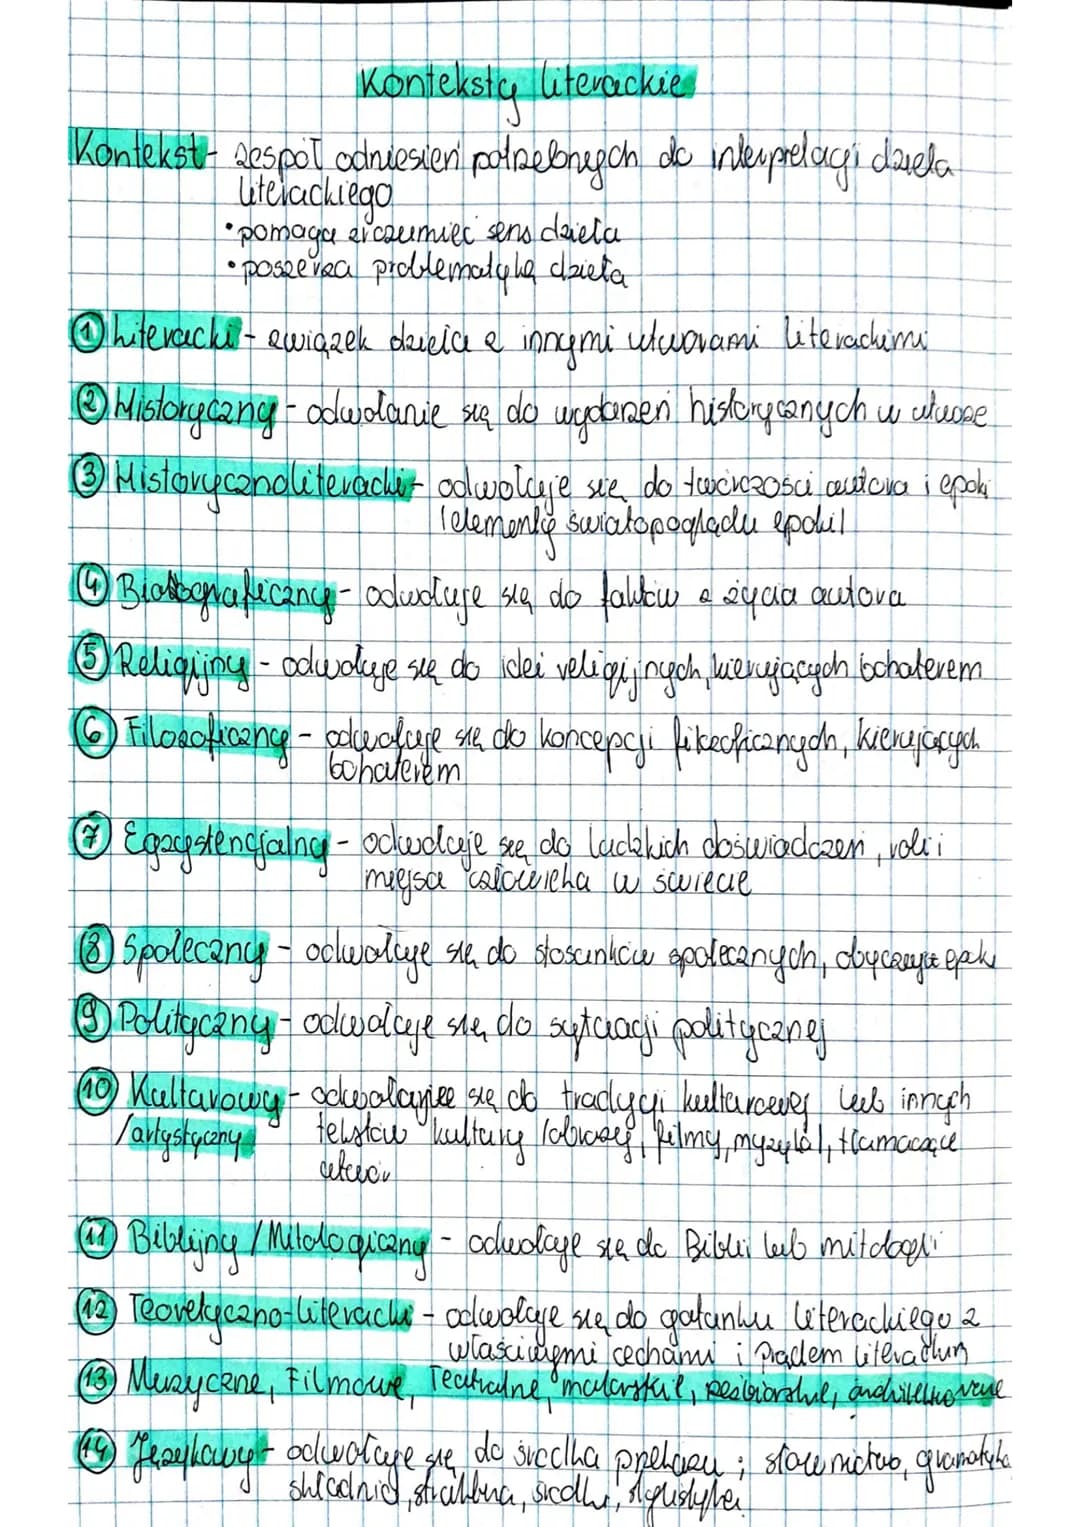 Konteksty literackie
Kontekst - zespół odniesień potrzebnych do interpretacji dzieła
literackiego
• pomaga zrozumieć sens dzieła
• poszerza problematykę dzieła
① Literacki - związek dzieła z innymi utworami literackimi
② Historyczny - odwołanie się do wydarzeń historycznych w utworze
③ Historycznoliteracki - odwołuje się do twórczości autora i epoki
(elementy światopoglądu epoki)
④ Biograficzny - odwołuje się do faktów z życia autora
⑤ Religijny - odwołuje się do idei religijnych, kierujących bohaterem
⑥ Filozoficzny - odwołuje się do koncepcji filozoficznych, kierujących
bohaterem
⑦ Egzystencjalny - odwołuje się do ludzkich doświadczeń, roli i
miejsca człowieka w świecie
⑧ Społeczny - odwołuje się do stosunków społecznych, epoki
⑨ Polityczny - odwołuje się do sytuacji politycznej
⑩ Kulturowy - odwołanie się do tradycji kulturowej lub innych
/artystyczny tekstów kultury (obrazy, filmy, muzyka), tłumaczące
utwór
⑪ Biblijny / Mitologiczny - odwołuje się do Biblii lub mitologii
⑫ Teoretyczno-literacki - odwołuje się do gatunku literackiego z
właściwymi cechami i prądem literackim
⑬ Muzyczne, Filmowe, Teatralne malarskie, rzeźbiarskie, architektoniczne
⑭ Językowy - odwołuje się do środka przekazu ; słownictwo, gramatyka
składnia, środki, stylistyka